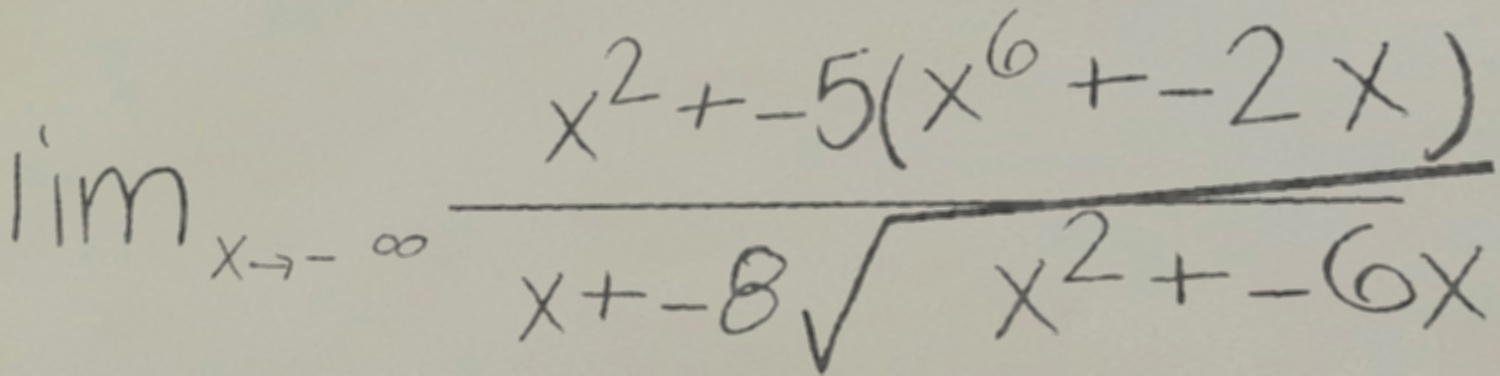 \lim_{x \to -\infty} \frac{x^2 + -5(x^6 + -2x)}{x + -8\sqrt{x^2 + -6x}}